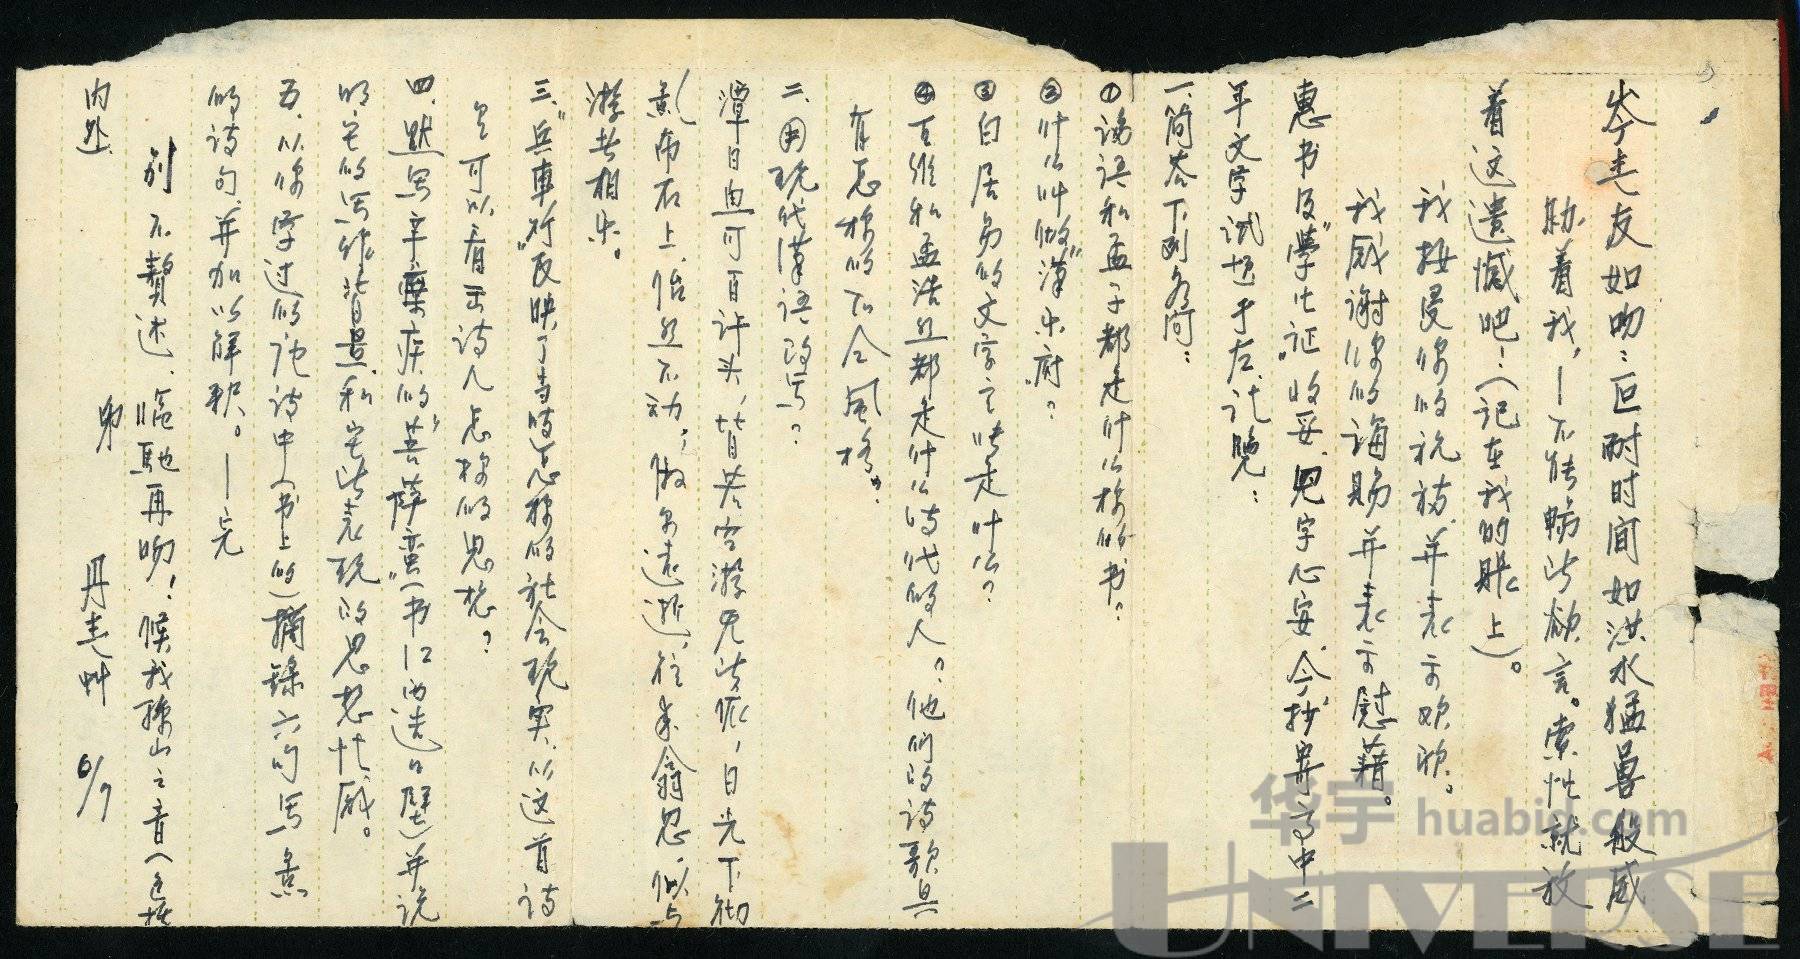 岑老友如吻：叵耐时间如洪水猛兽般威
胁着我，—不能畅此欲言。索性就放
着这遗憾吧！（记在我的账上）。
我接受你的祝福，并表示欢欣。
我感谢你的诲赐并表示慰藉。
惠书及"学生证"收妥，见字心安，今抄寄高中二
年文字试题于左，讫览：
一、简答下列各问：
①论语和孟子都是什么样的书？
②什么叫做"汉乐府"？
③白居易的文学主张是什么？
④王维和孟浩然都是什么时代的人？他们的诗歌具
有怎样的不今风格"？
二、用现代汉语改写？
潭中鱼可百许头，皆若空游无所依，日光下彻
影布石上，佁然不动；俶尔远逝，往来翕忽，似与
游者相乐。
三、"兵車行"反映了当时怎样的社会现实，从这首诗
里可以看出诗人怎样的思想？
四、默写辛棄疾的"菩萨蛮"（书江西造口壁）并说
明它的写作背景，和它所表现的思想情感。
五、从你学过的诗中（书上的）摘录六句写景
的诗句，并加以解釈。—完
别不赘述，临驰再吻！候我孫山之音
内处
弟 丹老艸 6/7
华宇 huabid.com
UNIVERSE